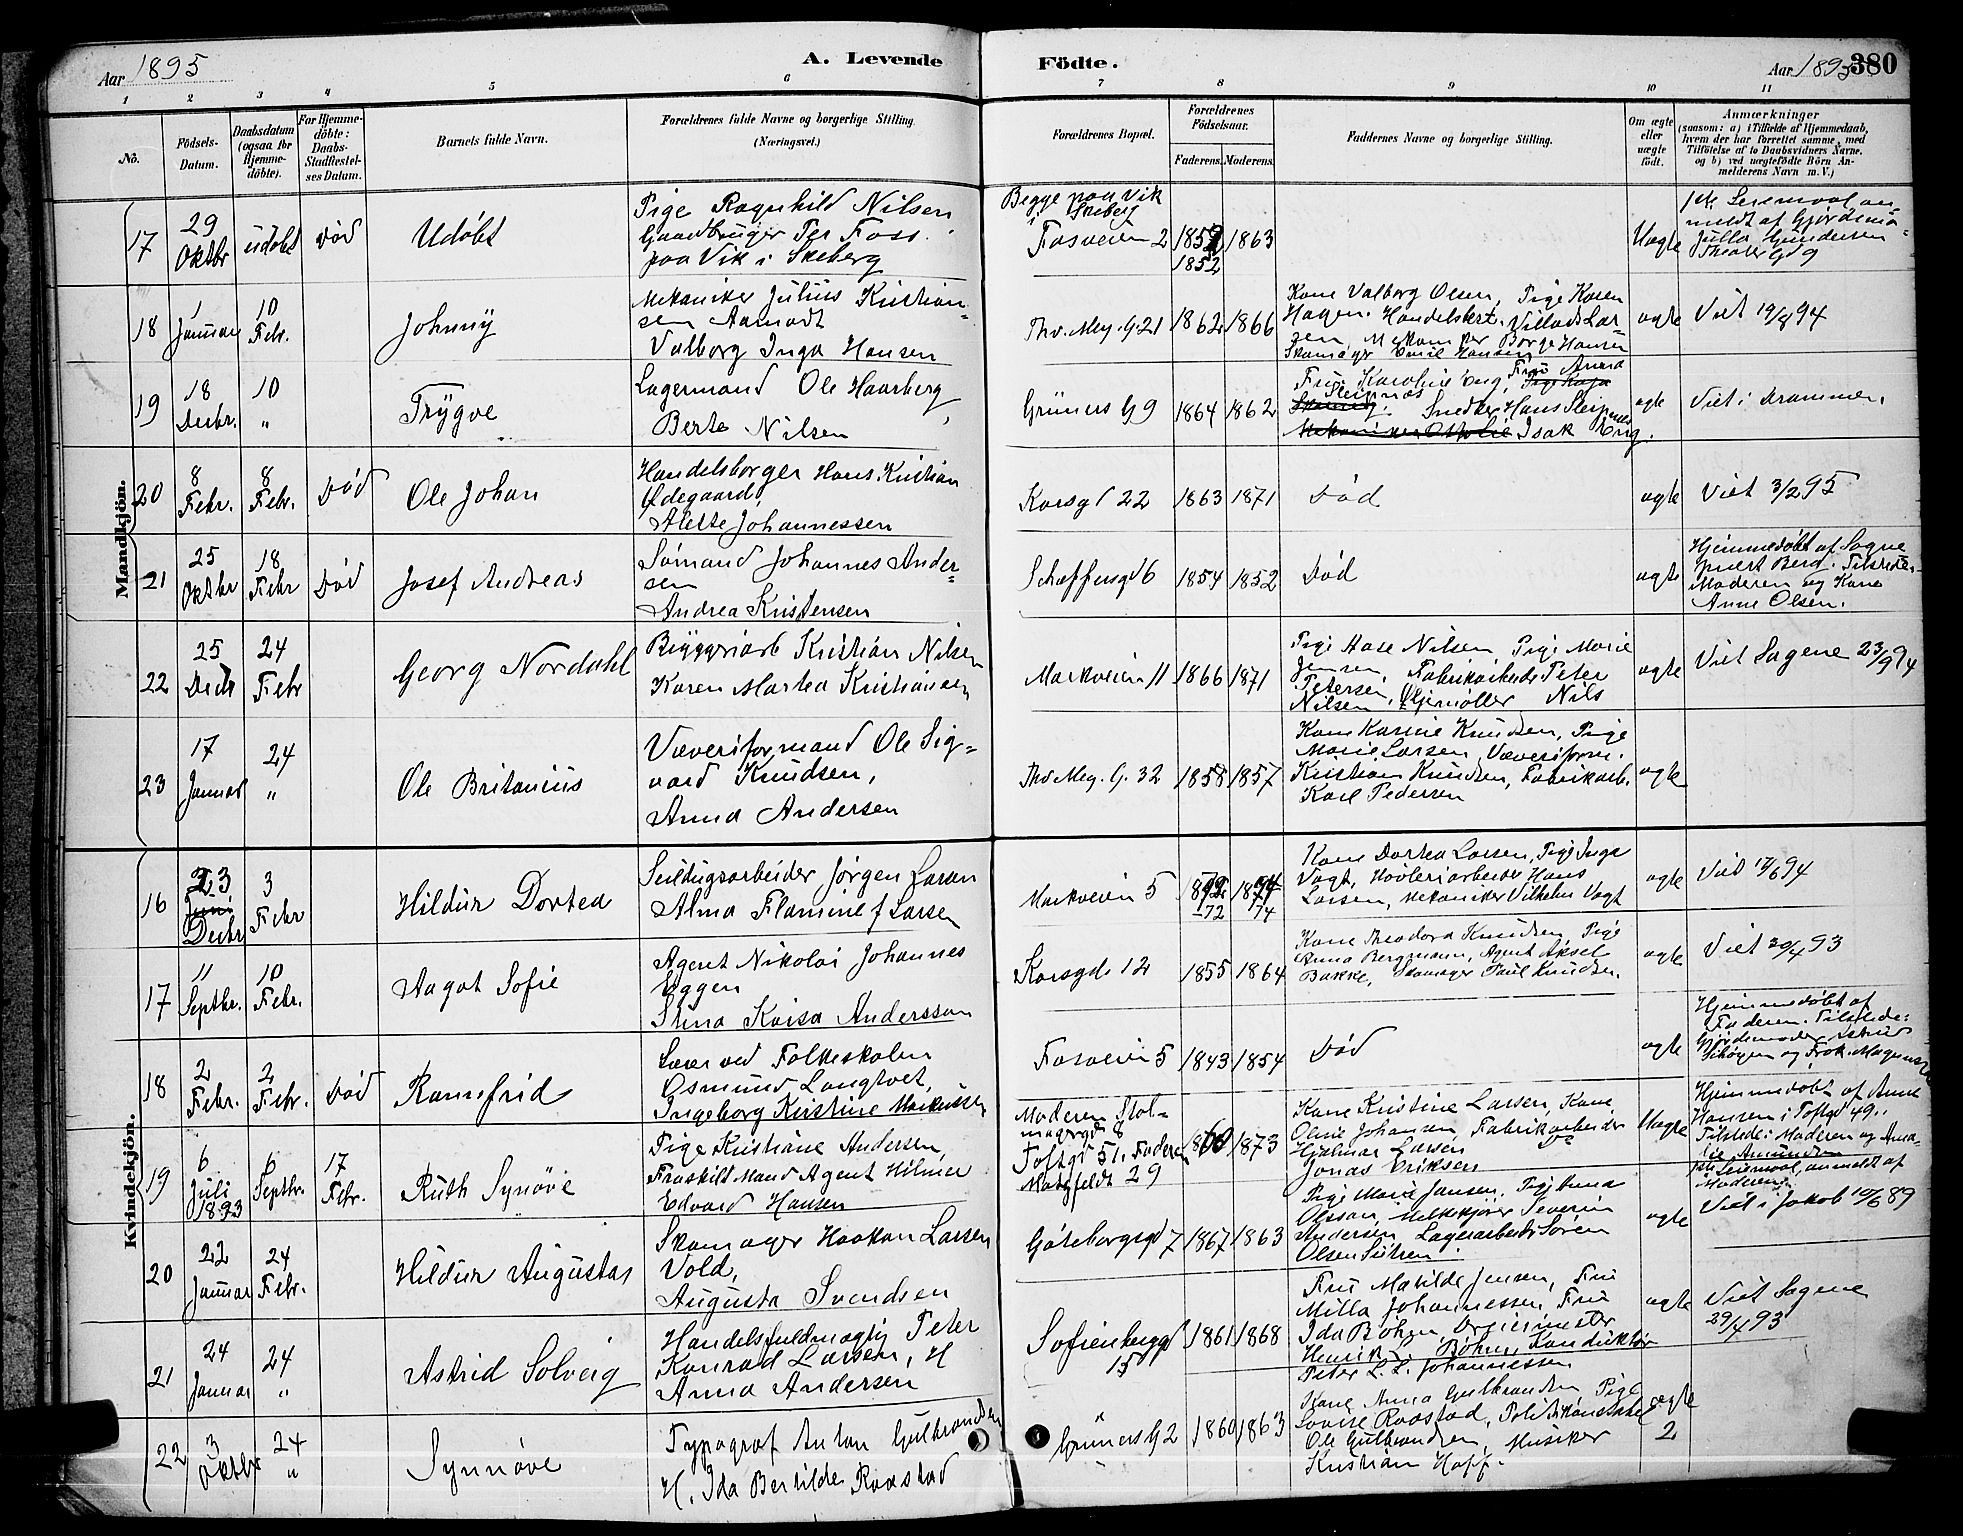 Aar 1895
A. Levende
Födte.
Aar 1895
380
1 2 3 4 5 6 7 8 9 10 11
No.
Födsels-
Datum.
Daabsdatum
(ogsaa for
Hjemme-
döbte).
For Hjemme-
döbte:
Daabs-
Stadfæstel-
ses Datum.
Barnets fulde Navn.
Forældrenes fulde Navne og borgerlige Stilling.
(Næringsvei.)
Forældrenes Bopæl.
Forældrenes
Födselsaar.
Faderens. Moderens.
Faddernes Navne og borgerlige Stilling.
Om ægte
eller
uægte
födt.
Anmærkninger
(saasom: a) i Tilfælde af Hjemmedaab,
hvem der har forrettet samme, med
Tilföielse af to Daabsvidners Navne.
og b) ved uægtefödte Börn An-
melderens Navn m. V.)
Mandkjön.
17
29
Oktbr
udöbt
Död
Udöbt
Pige Ragnhild Nilsen
Gaardbruger Per Foss
paa Vik i Skeberg
Begge paa Vik
Skeberg
Fosveien 2
1852
1863
Uægte
1ste Leiermaal an-
meldt af Gjordemo-
Julla Gundersen
Theater Gd 9
18
1
Januar
10
Febr.
Johnny
Mekaniker Julius Kristian-
sen Aamodt
Valborg Inga Hansen
Thv. Mey. G. 21
1862
1866
Kone Valborg Olsen, Pige Karen
Hagen. Handelsbert. Villads Lar-
sen, Mekaniker Borge Hansen
Skomager Emil Hansen
ægte
Viet 19/8 94
19
18
Decbr.
10
"
Trygve
Lagermand Ole Haarberg
Berte Nilsen
Grüners G 9
1864
1862
Frue Karoline Eng, Frue Anna
Sleipnæs
Snedker Hans Sleipnæs
Isak Eng.
ægte
Viet i Drammen.
20
8
Febr.
8
Febr.
Död
Ole Johan
Handelsborger Hans Kristian
Ödegaard,
Alette Johannessen
Korsgd 22
1863
1871
Död
ægte
Viet 3/2 95
21
25
Oktbr
18
Febr
Död
Josef Andreas
Sömand Johannes Ander-
sen
Andrea Kristensen
Schæffersgd 6
1854
1852
Död
ægte
Hjemmedöbt af Sogne
prest Berg. Tilstede:
Moderen og Kone
Anne Olsen.
22
25
Decbr
24
Febr
Georg Nordahl
Bryggeriarb Kristian Nilsen
Karen Martea Kristiansen
Markveien 11
1866
1871
Pige Hase Nilsen Pige Marie
Jensen, Fabrikarbeider Peter
Petersen, Oljemöller Nils
Nilsen
ægte
Viet Sagene 23/9 94
23
17
Januar
24
"
Ole Britanius
Væveriformand Ole Sig-
vard Knudsen,
Anna Andersen
Thv Mey. G. 32
1858
1857
Kone Karine Knudsen, Pige
Marie Larsen, Væveriform.
Kristian Knudsen, Fabrikarb.
Karl Pedersen
ægte
Kvindekjön.
16
23
Decbr
3
Febr
Hildur Dortea
Seildugsarbeider Jörgen Larsen
Alma Flamine f Larsen
Markveien 5
1872
-72
1874
74
Kone Dortea Larsen, Pige Inga
Vogt, Hövleriarbeider Hans
Larsen, Mekaniker Vilhelm Vogt
ægte
17
11
Septbr.
10
Febr.
Aagot Sofie
Agent Nikolai Johannes
Eggen
Stina Kaisa Andersson
Korsgd 12
1855
1864
Kone Theodora Knudsen, Pige
Anna Bergmann, Agent Aksel
Bakke, Skomager Paul Knudsen.
ægte
18
2
Febr.
2
Febr.
Död
Ramfrid
Lærer ved Folkeskolen
Osmund Langtvet,
Ingeborg Kirstine Markussen
Fosveien 5
1843
1854
Död
ægte
Hjemmedöbt af
Faderen. Tilstede:
Gjordemoder Astrid
19
6
Juli
1893
6
Septbr.
17
Febr.
Ruth Synöve
Pige Kristiane Andersen,
Fraskilt Mand Agent Hilmer
Edvard Hansen
Moderen Stol-
magergd 8
Toftgd 51. Faderen
1860
1873
Kone Kristine Larsen, Kone
Oline Johansen, Fabrikarbeider
Hjalmar Larsen
Jonas Eriksen
Uægte
Hjemmedöbt af Anne
Hansen i Toftgd 49.
Tilstede: Moderen og Ama-
lie Amundsen
1ste Leiermaal, anmeldt af
Moderen.
20
22
Januar
24
Febr.
Hildur Augusta
Skomager Haakon Larsen
Vold,
Augusta Svendsen
Göteborggd 7
1867
1863
Pige Marie Jansen, Pige Anna
Olsson, Melkekjörer Severin
Andersen Lagerarbeider Sören
Olsen
ægte
Viet i Jakob 10/6 89
21
24
Januar
24
"
Astrid Solveig
Handelsfuldmægtig Peter
Konrad Larsen, H
Anna Andersen
Sofienberggd
15
1861
1868
Frue Matilde Jensen, Frue
Milla Johannessen, Frue
Ida Böhm Dreiermester
Henrik L. Böhm, Konduktör
Peter L. L. Johannessen
ægte
Viet Sagene
29/4 93
22
3
Oktbr
24
"
Synnöve
Typograf Anton Gulbrandsen
H. Ida Bertilde Raastad
Grüners G 2
1860
1863
Kone Anna Gulbrandsen, Pige
Lovise Raastad, Politikonstabel
Ole Gulbrandsen, Musiker
Kristian Hoff.
ægte
2